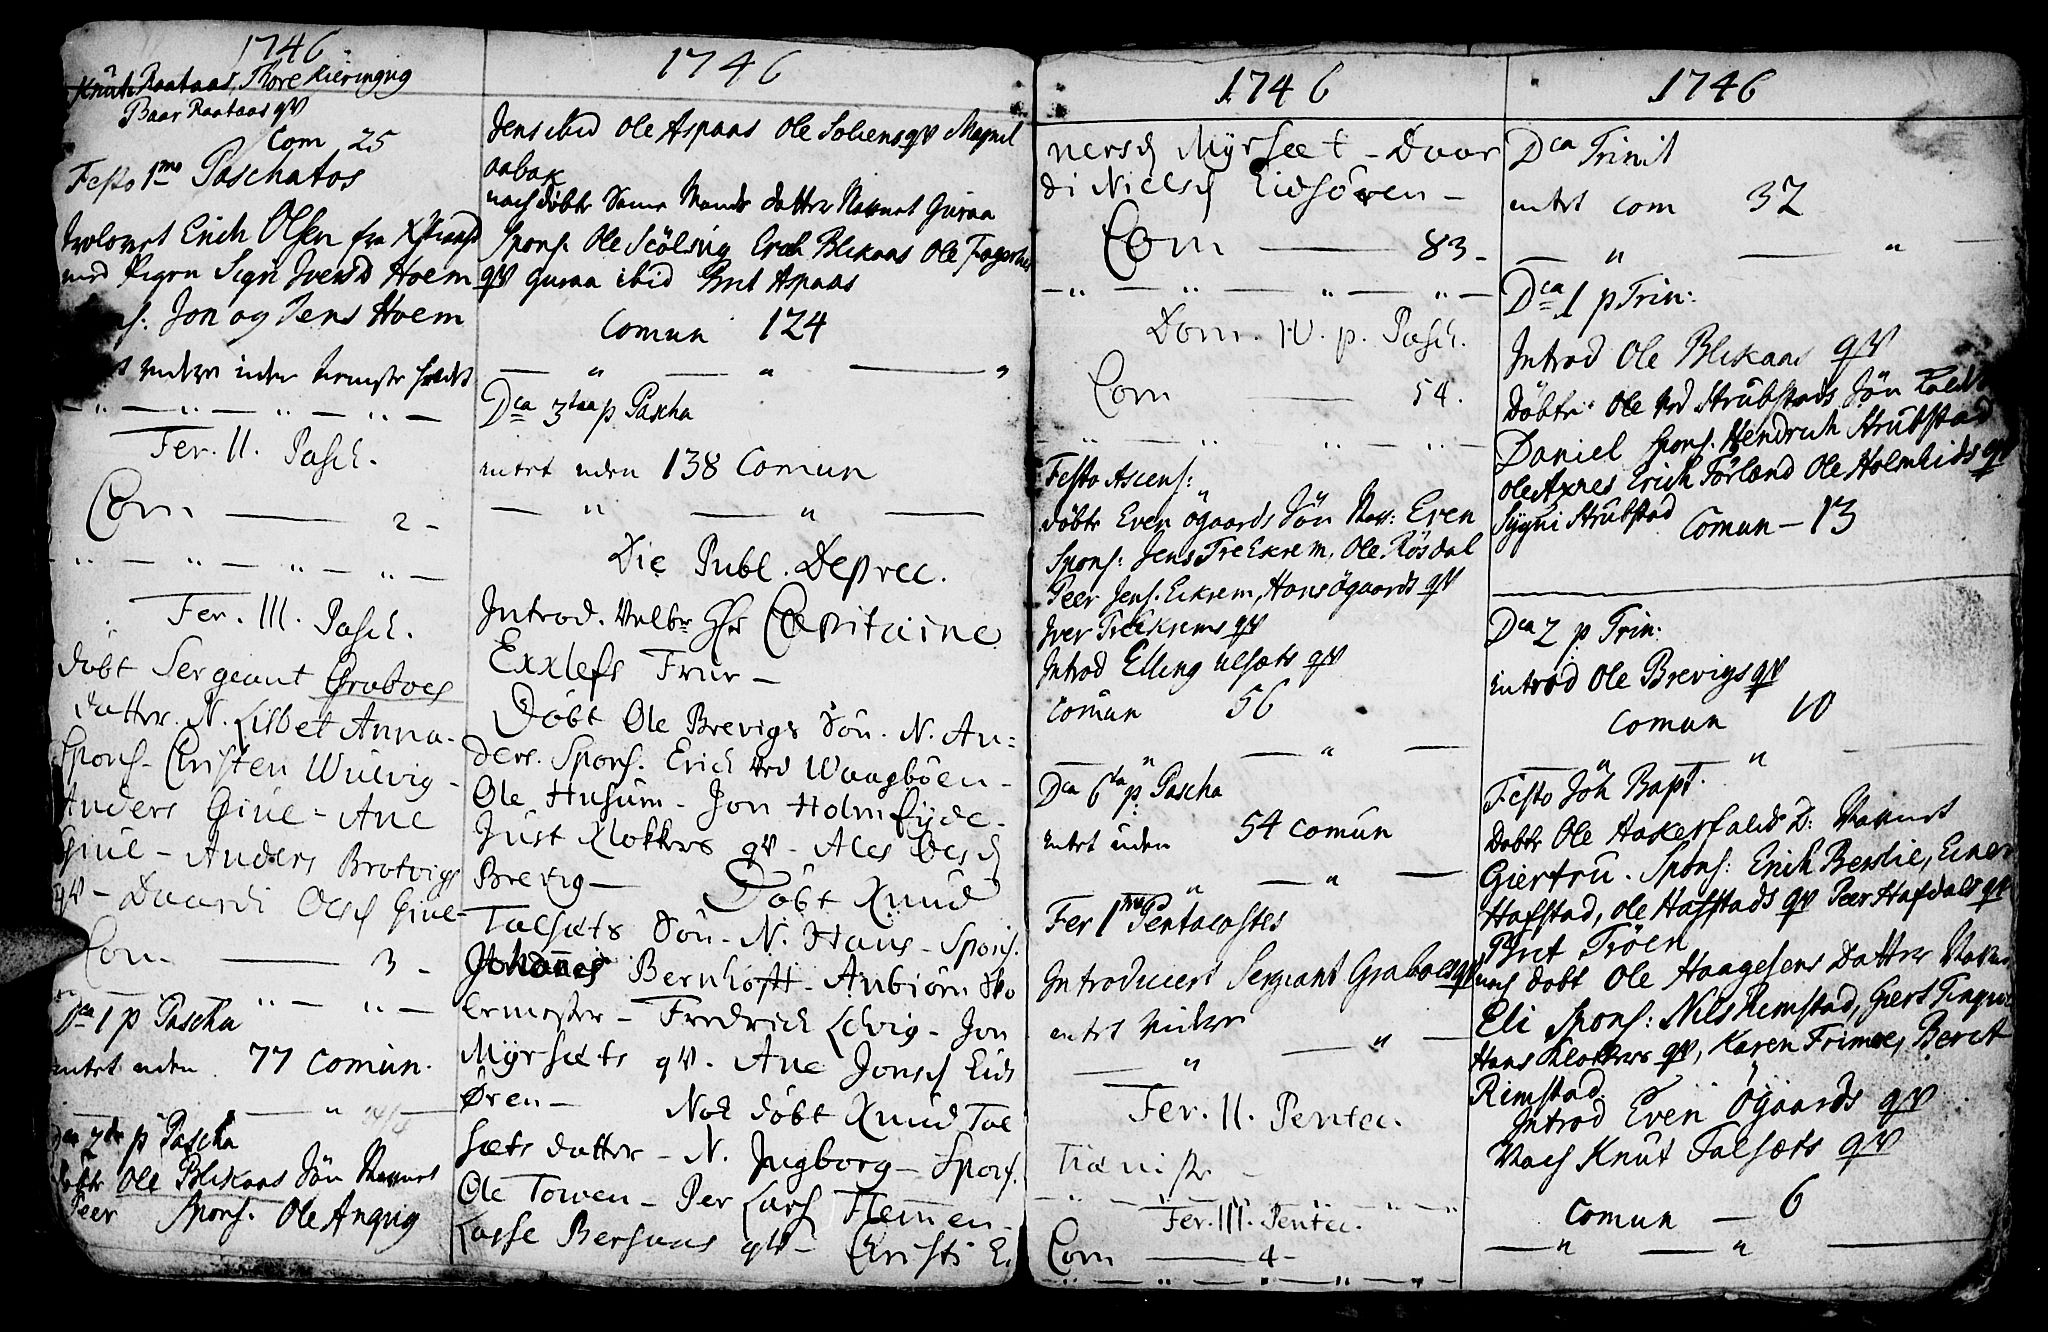 1746
Knut Raataas, Thore Kieringvig
Baar Raataas qv
Com 25
Festo 1mo Paschatos
trolovet Erich Olsen fra
med Pigen Sigri Iversd Hoem
Jon og Jens Hoem
videre uden
Fer. II. Pasch.
Com 2 -
Fer. III. Pasch.
döbt Sergeant Graboes
datter. N. Lisbet Anna-
Spons- Christen Wulvig-
Anders Giue - Ane
Giue - Anders Brotvigs
qv - Daardi Olsd Giue-
Com- 3 -
Dca 1 p Pascha
intet uden 77 Comun.
Dca 2da p Pascha
döbte Ole Blikaas Sön Navnet
Peer Spons. Ole Angvig
1746
Jens ibid Ole Aspaas Ole Solensqv Magnil
aabak
noch döbte Samme Mands datter Navnet Guraa
Spons. Ole Sciölsvig Erich Blikaas Ole Fagernes
qv guraa ibid Brit Aspaas
Comun 124
Dca 3tia p Pascha
intet uden 138 Comun
Die Publ. Deprec.
Introd. Velbr Hr Capitaine
Exxlefs Frue -
Döbt Ole Brevigs Sön. N. An=
ders. Spons. Erich ved Waagböen-
Ole Husum - Jon Holmeijde-
Just Klokkers qv - Ales Olesd
Brevig - Döbt Knud
Talsæts Sön - N. Hans - Spons.
Johannes Bernhoft - Anbiörn Sko
lemester - Fredrich Ledvig - Jon
Myrsæts qv. Ane Jonsd Eids
Ören - Nok döbt Knud Tal
sæts datter - N. Ingborg - Spons.
Ole Towen - Per Lars Flemen -
Lasse Bersaas qv - Christi E.
1746
nersd Myrsæt - Daar
di Nielsd Eidsören -
Com 83 -
Dom. IV. p. Pasch.
Com 54.
Festo Ascens:
döbte Even Ögaards Sön Nav: Even
Spons: Jens Treekrem, Ole Rösdal
Peer Jens. Eikrem, Hans Ögaards qv
Iver Treekrems qv
Introd Elling Ulsæts qv
Comun 56
Dca 6ta p Pascha
intet uden 54 comun
Fer 1ma Pentacostes
Introduceret Sergeant Graboes qv
intet videre
Fer. II. Pentec.
Tieniste -
Fer. III. Pentec.
Com 4 -
1746
Dca Trinit
intet com 32
Dca 1 p Trin:
Introd Ole Blikaas qv
Döbte Ole ved Strubstads Sön kaldt
Daniel Spons. Hendrich Strubstad
Ole Axnes Erich Förland Ole Holmlids qv
Sygni Strubstad Comun - 13
Dca 2 p Trin:
introd Ole Brevigs qv
Comun 10
Festo Joh Bapt.
Dobte Ole Aakersalids D: Navnet
Giertru. Spons: Erich Berslie, Einer
Hafstad, Ole Hafstads qv Peer Hafdals qv
Brit Tröen
noch döbt Ole Haagesens Datter Navnet
Eli Spons: Nils Remstad, Giert Tingvold
Hans Klokkers qv, Karen Frimoe, Berit
Rimstad.
Introd Even Ögaards qv
Noch Knut Talsæts qv
Comun - 6